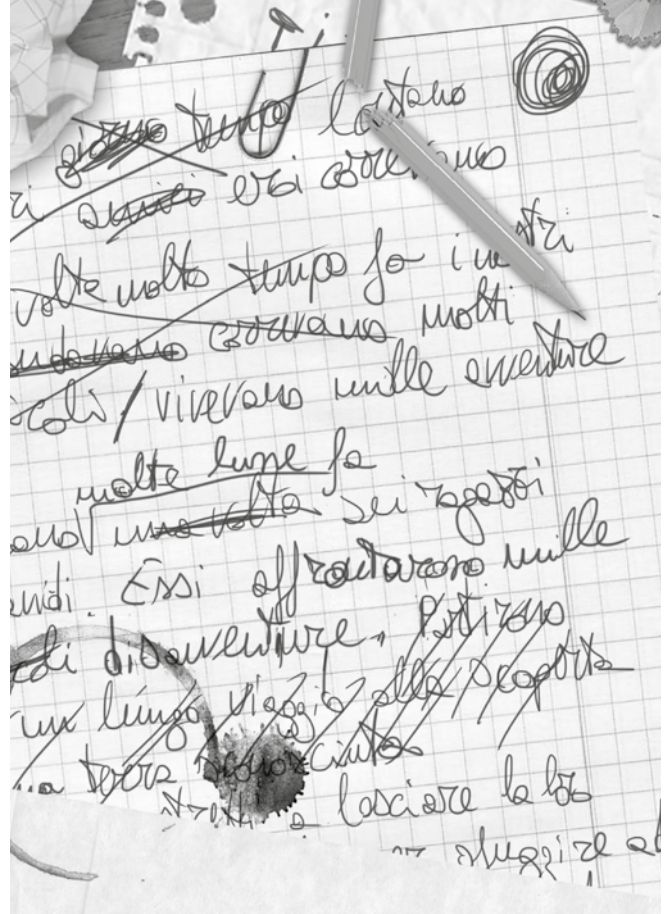 giorno tempo lontano
amici eroi correvano
volte molto tempo fa i
correvano molti
vivevano mille avventure
molte lune fa
una volta sei ragazzi
Essi affrontarono mille
di disavventure. Partirono
un lungo viaggio alla scoperta
terra sconosciuta
a lasciare la loro